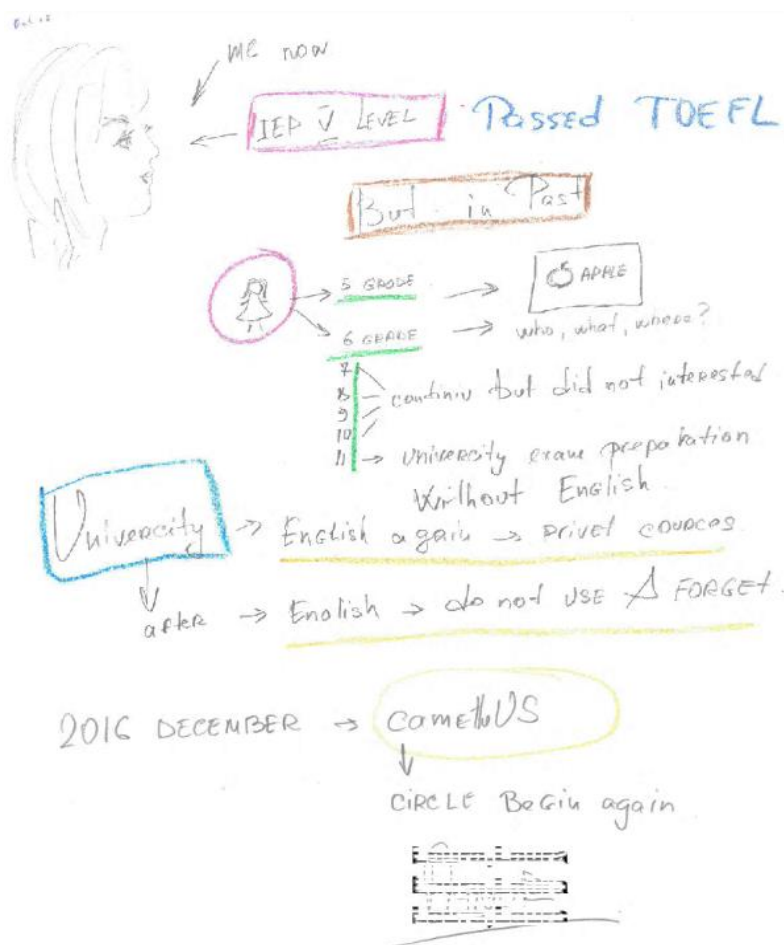 me now
IEP V LEVEL
Passed TOEFL
But in Past
5 GRADE
APPLE
6 GRADE
who, what, where?
7
8
continiu but did not interested
9
10
11 → University exam preparation
Without English
Univercity → English again → privet cources
after → English → do not use FORGET.
2016 DECEMBER → came US
CIRCLE Begin again